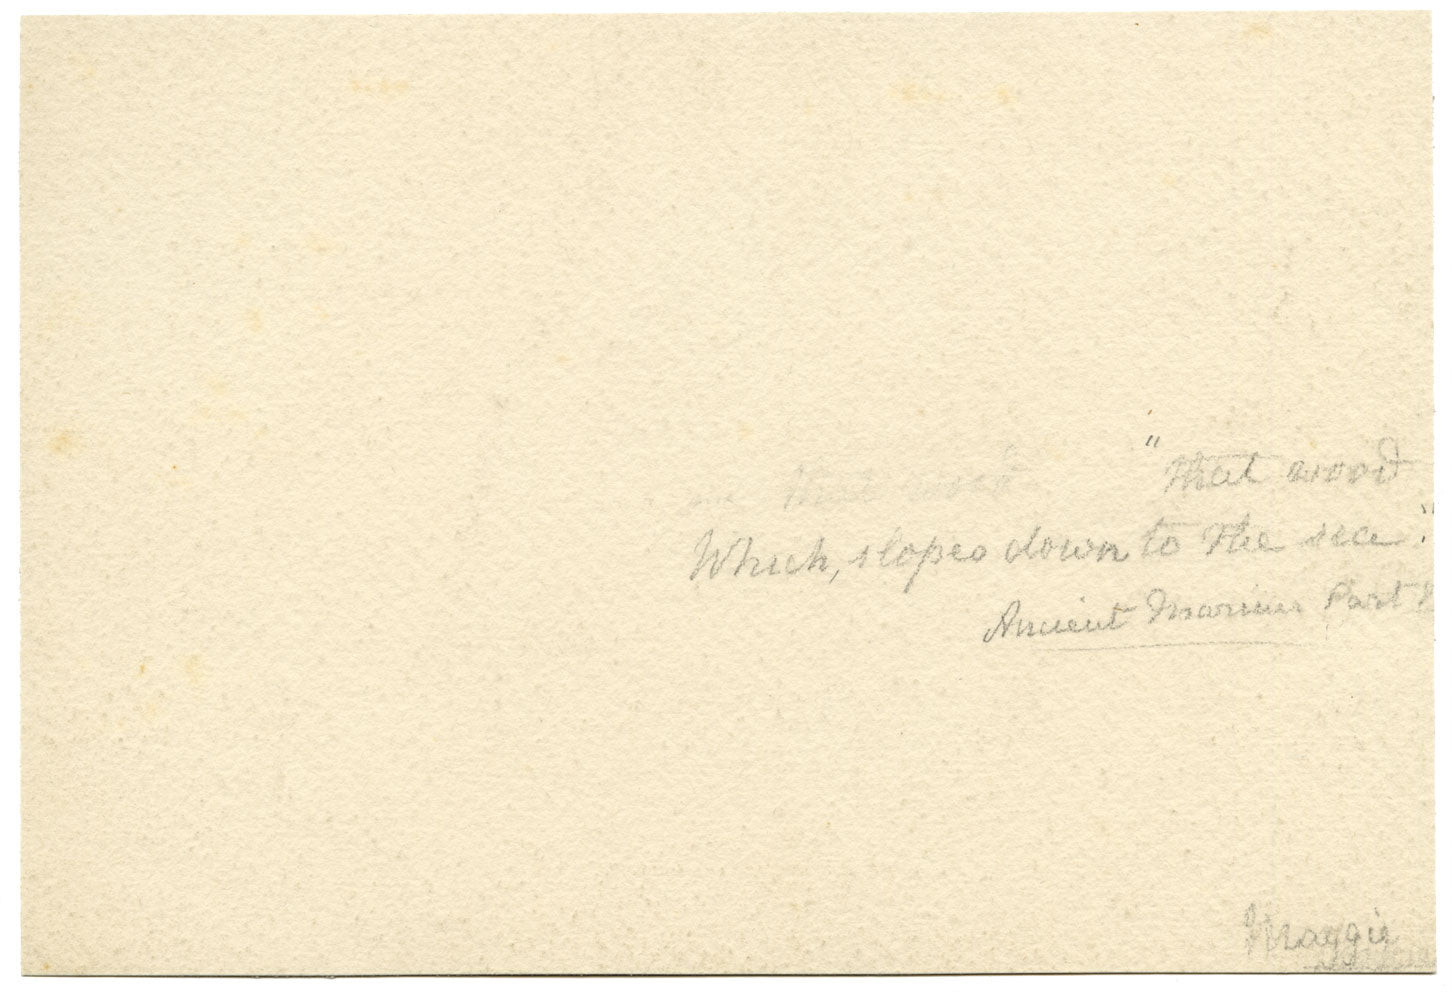 "that wood
that wood
Which, slopes down to the sea."
Ancient Mariner Part
Maggie